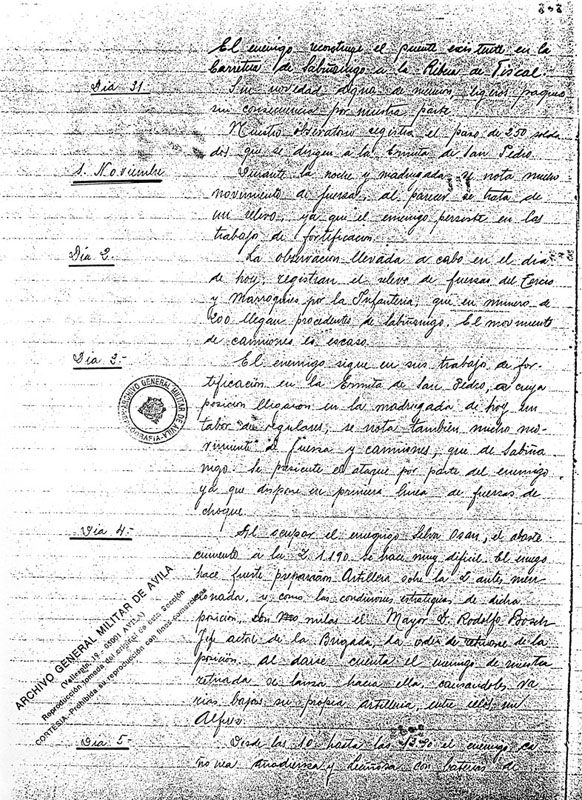 El enemigo reconstruye el puente existente en la
Carretera de Sabiñanigo a la Ribera de Fiscal.
Dia 31.-
Sin novedad digna de mencion, ligeros paqueos
sin consecuencia por nuestra parte
Nuestro observatorio registra el paso de 250 solda-
dos que se dirigen a la Ermita de San Pedro.
1. Noviembre
Durante la noche y madrugada se nota mucho
movimiento de fuerza, al parecer se trata de
un relevo, ya que el enemigo persiste en los
trabajo de fortificacion.
Dia 2.-
La observacion llevada a cabo en el dia
de hoy, registran el relevo de fuerzas del Tercio
y Marroquies por la Infanteria, que en numero de
200 llegan procedentes de Sabiñanigo. El movimiento
de camiones es escaso.
Dia 3.-
El enemigo sigue en sus trabajo, de for-
tificación en la Ermita de San Pedro, a cuya
posicion llegaron en la madrugada de hoy un
tabor de regulares, se nota tambien mucho mo-
vimiento de fuerza y camiones, que de Sabiña
nigo. Se presiente el ataque por parte del enemigo
ya que dispone en primera linea de fuerzas de
choque.
Dia 4.-
Al ocupar el enemigo Selva Osan, el abaste
cimiento a la 1.190 se hace muy dificil. El enemigo
hace fuerte preparacion Artillera sobre la antes men
cionada, y como las condiciones estrategicas de dicha
posicion, son malas el Mayor D. Rodolfo Bosch
Jefe de la Brigada, da orden de retirarse de la
posicion. Al darse cuenta el enemigo de nuestra
retirada se lanza hacia ella, causandole va
rias bajas su propia artilleria, entre ellos un
Alferez.
Dia 5.-
Desde las 10 hasta las el enemigo ca
ñonea con baterias de
ARCHIVO GENERAL MILITAR DE AVILA
(Vallespin, 19 - 05001 AVILA)
Reproducción tomada del original de esta Sección
CORTESIA-Prohibida su reproducción con fines comerciales
ARCHIVO GENERAL MILITAR DE AVILA